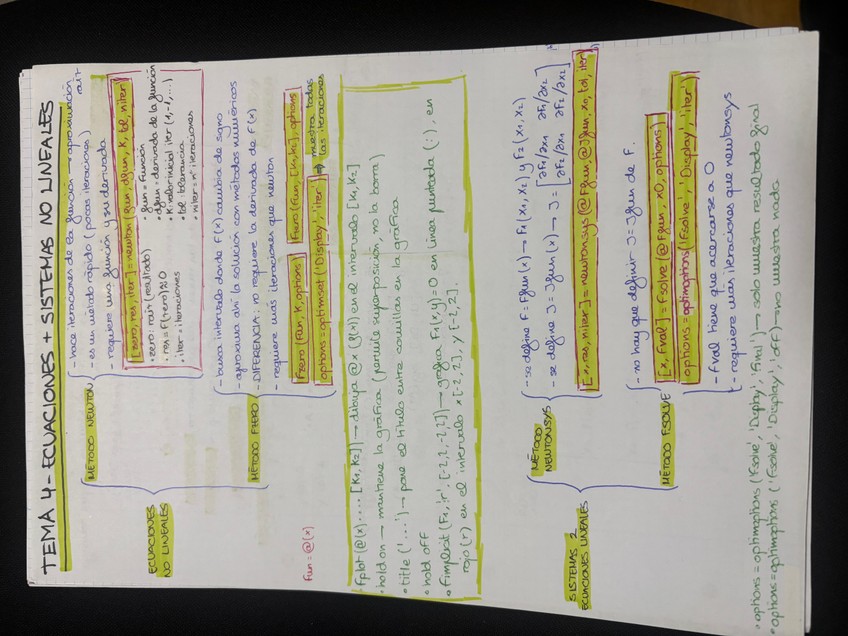 TEMA 4 - ECUACIONES + SISTEMAS NO LINEALES
ECUACIONES
NO LINEALES
MÉTODO NEWTON
- hace iteraciones de la función → aproximación
raíz
- es un método rápido (pocas iteraciones)
- requiere una función y su derivada
[zero, res, iter] = newton (fun, dfun, K, tol, niter)
• zero: raíz (resultado)
• res = F(zero) ≈ 0
• iter = iteraciones
• fun = función
• dfun = derivada de la función
• K: valor inicial iter (1, -1, ...)
• tol: tolerancia
• niter = nº iteraciones
MÉTODO FZERO
- busca intervalo donde F(x) cambia de signo
- aproxima ahí la solución con métodos numéricos
- DIFERENCIA: no requiere la derivada de F(x)
- requiere más iteraciones que newton
Fzero (Fun, K, options)
Fzero (Fun, [K1, K2], options
options = optimset ('Display', 'iter') → muestra todas
las iteraciones
Fun = @(x)
• Fplot (@(x) .... [K1, K2]) → dibuja @x (f(x)) en el intervalo [K1, K2]
• hold on → mantiene la gráfica (permite superposición, no la borra)
• title ('...') → pone el título entre comillas en la gráfica
• hold off
• Fimplicit (F1, 'r:' [-2, 2, -2, 2]) → gráfica F1(x,y)=0 en línea punteada (:), en
rojo (r) en el intervalo x [-2, 2], y [-2, 2].
SISTEMAS 2
ECUACIONES LINEALES
MÉTODO
NEWTONSYS
- se define F = Ffun(x) → F1(x1, x2) y F2(x1, x2)
- se define J = Jfun(x) → J = [∂F1/∂x1 ∂F1/∂x2
∂F2/∂x1 ∂F2/∂x2]
[x, res, niter] = newtonsys (@Ffun, @Jfun, x0, tol, iter
MÉTODO FSOLVE
- no hay que definir J = Jfun de F.
[x, Fval] = Fsolve (@Ffun, x0, options)
options = optimoptions ('Fsolve', 'Display', 'iter')
- Fval tiene que acercarse a 0
- requiere más iteraciones que newtonsys
• options = optimoptions ('Fsolve', 'Display', 'Final') → solo muestra resultado final
• options = optimoptions ('Fsolve', 'Display', 'off') → no muestra nada